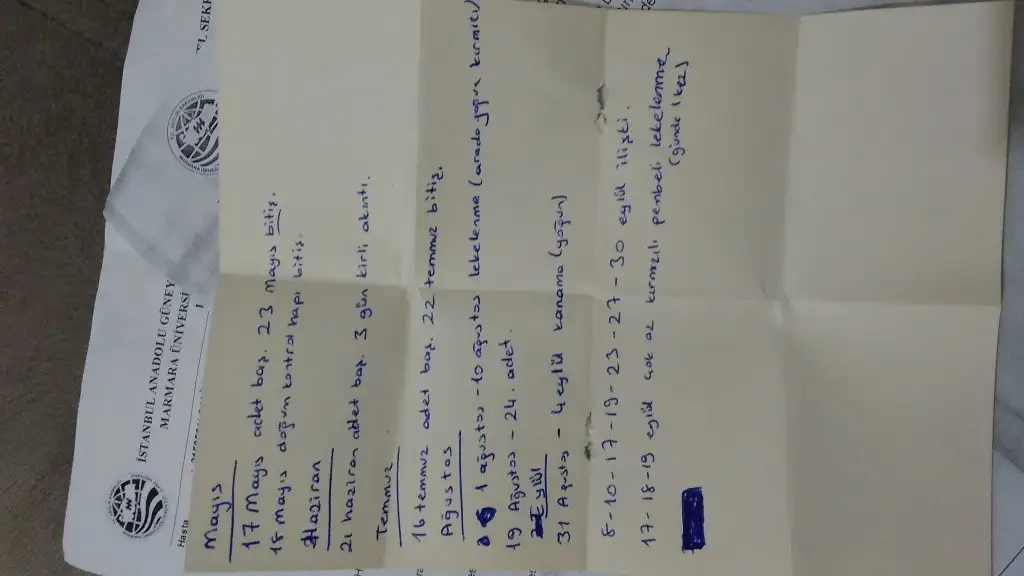 İSTANBUL ANADOLU GÜNEY
MARMARA ÜNİVERSİ
Hasta
Mayıs
17 Mayıs adet baş. 23 Mayıs bitiş.
18 mayıs doğum kontrol hapı bitiş.
Haziran
21 haziran adet baş. 3 gün kirli akıntı.
Temmuz
16 temmuz adet baş. 22 temmuz bitiş.
Ağustos
1 ağustos - 10 ağustos lekelenme (arada yoğun kırmızı)
19 Ağustos - 24. adet.
Eylül
31 Ağustos - 4 eylül kanama (yoğun)
8-10-17-19-23-27-30 eylül ilişki.
17-18-19 eylül çok az kırmızılı pembeli lekelenme
(günde 1 kez)